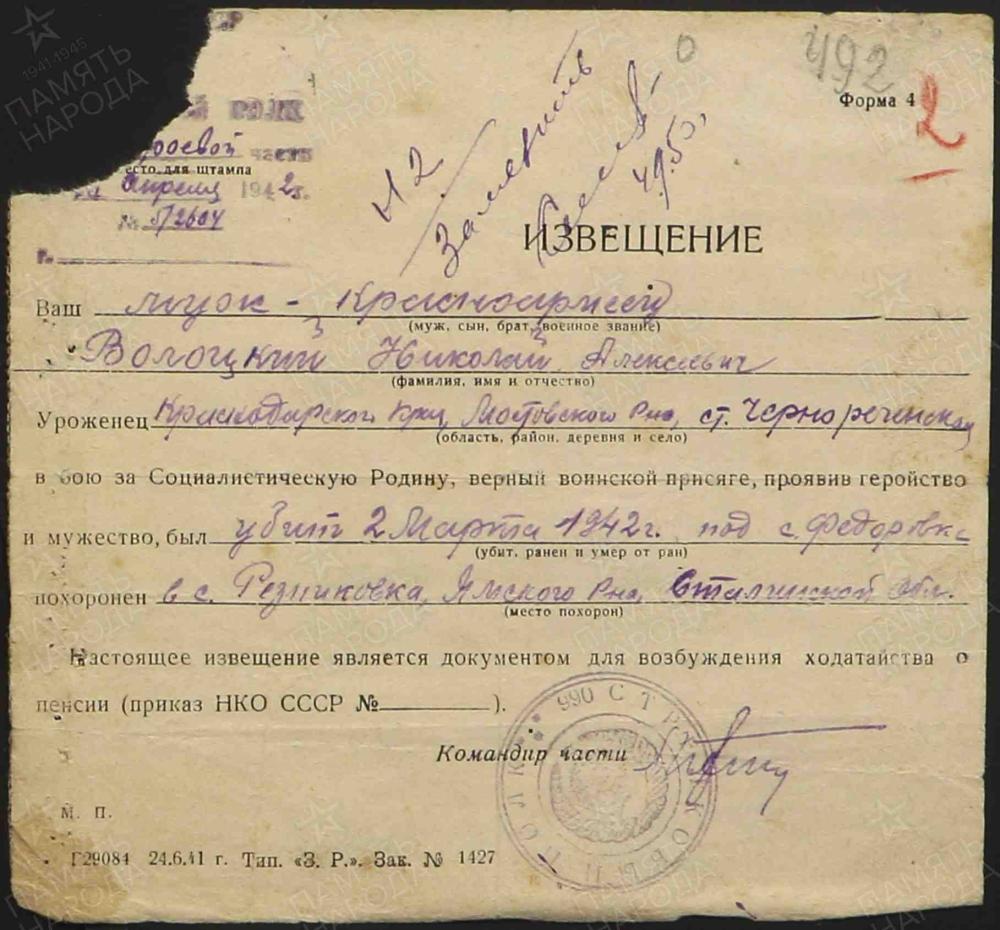 492
Форма 4
2
ПОЛК
строевой части
место для штампа
Апреля 1942г.
№ 5/2604
г.
ИЗВЕЩЕНИЕ
Ваш муж - Красноармеец
(муж, сын, брат, военное звание)
Волоцкий Николай Алексеевич
(фамилия, имя и отчество)
Уроженец Краснодарского Края, Мостовского Р-на, ст. Чернореченская
(область, район, деревня и село)
в бою за Социалистическую Родину, верный воинской присяге, проявив геройство
и мужество, был убит 2 Марта 1942г. под с. Федоровка
(убит, ранен и умер от ран)
похоронен в с. Резниковка, Ямского Р-на, Сталинской Обл.
(место похорон)
Настоящее извещение является документом для возбуждения ходатайства о
пенсии (приказ НКО СССР № ).
Командир части
990 СТРЕЛКОВЫЙ ПОЛК
М. П.
Г29084 24.6.41 г. Тип. «З. Р.». Зак. № 1427
1941-1945
ПАМЯТЬ НАРОДА